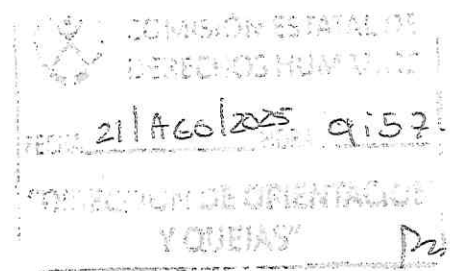 COMISIÓN ESTATAL DE
DERECHOS HUMANOS
FECHA 21/AGO/2025 9:57
DE ORIENTACIÓN
Y QUEJAS"